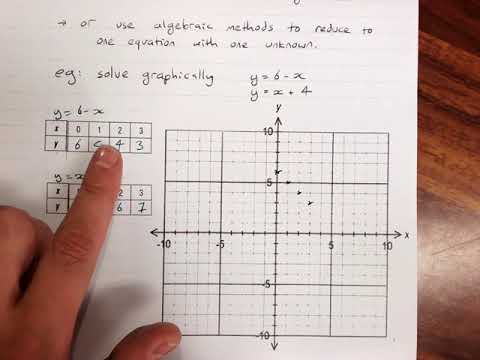 → or use algebraic methods to reduce to
one equation with one unknown.
eg: solve graphically y = 6 - x
y = x + 4
y = 6 - x
x 0 1 2 3
y 6 5 4 3
y = x
x 2 3
y 6 7
y
10
5
-10 -5 5 10 x
-5
-10